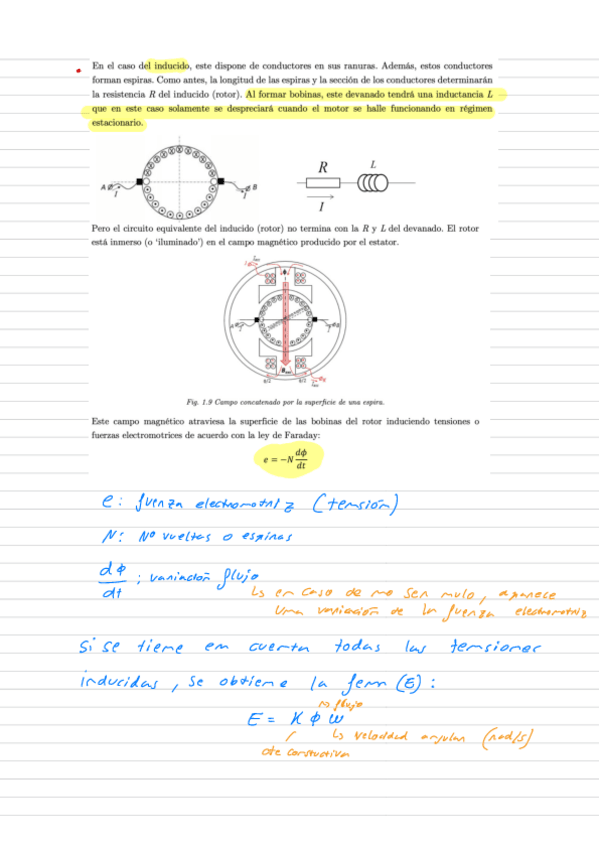 En el caso del inducido, este dispone de conductores en sus ranuras. Además, estos conductores
forman espiras. Como antes, la longitud de las espiras y la sección de los conductores determinarán
la resistencia R del inducido (rotor). Al formar bobinas, este devanado tendrá una inductancia L
que en este caso solamente se despreciará cuando el motor se halle funcionando en régimen
estacionario.
A
I
B
I
R
L
I
Pero el circuito equivalente del inducido (rotor) no termina con la R y L del devanado. El rotor
está inmerso (o ‘iluminado’) en el campo magnético producido por el estator.
Fig. 1.9 Campo concatenado por la superficie de una espira.
Este campo magnético atraviesa la superficie de las bobinas del rotor induciendo tensiones o
fuerzas electromotrices de acuerdo con la ley de Faraday:
e = −N dϕ/dt
e: fuerza electromotriz (tensión)
N: Nº vueltas o espiras
dϕ/dt ; variación flujo
↳ en caso de no ser nulo, aparece
una variación de la fuerza electromotriz
Si se tiene en cuenta todas las tensiones
inducidas, se obtiene la fem (E):
flujo
E = K ϕ ω
↳ velocidad angular (rad/s)
cte constructiva